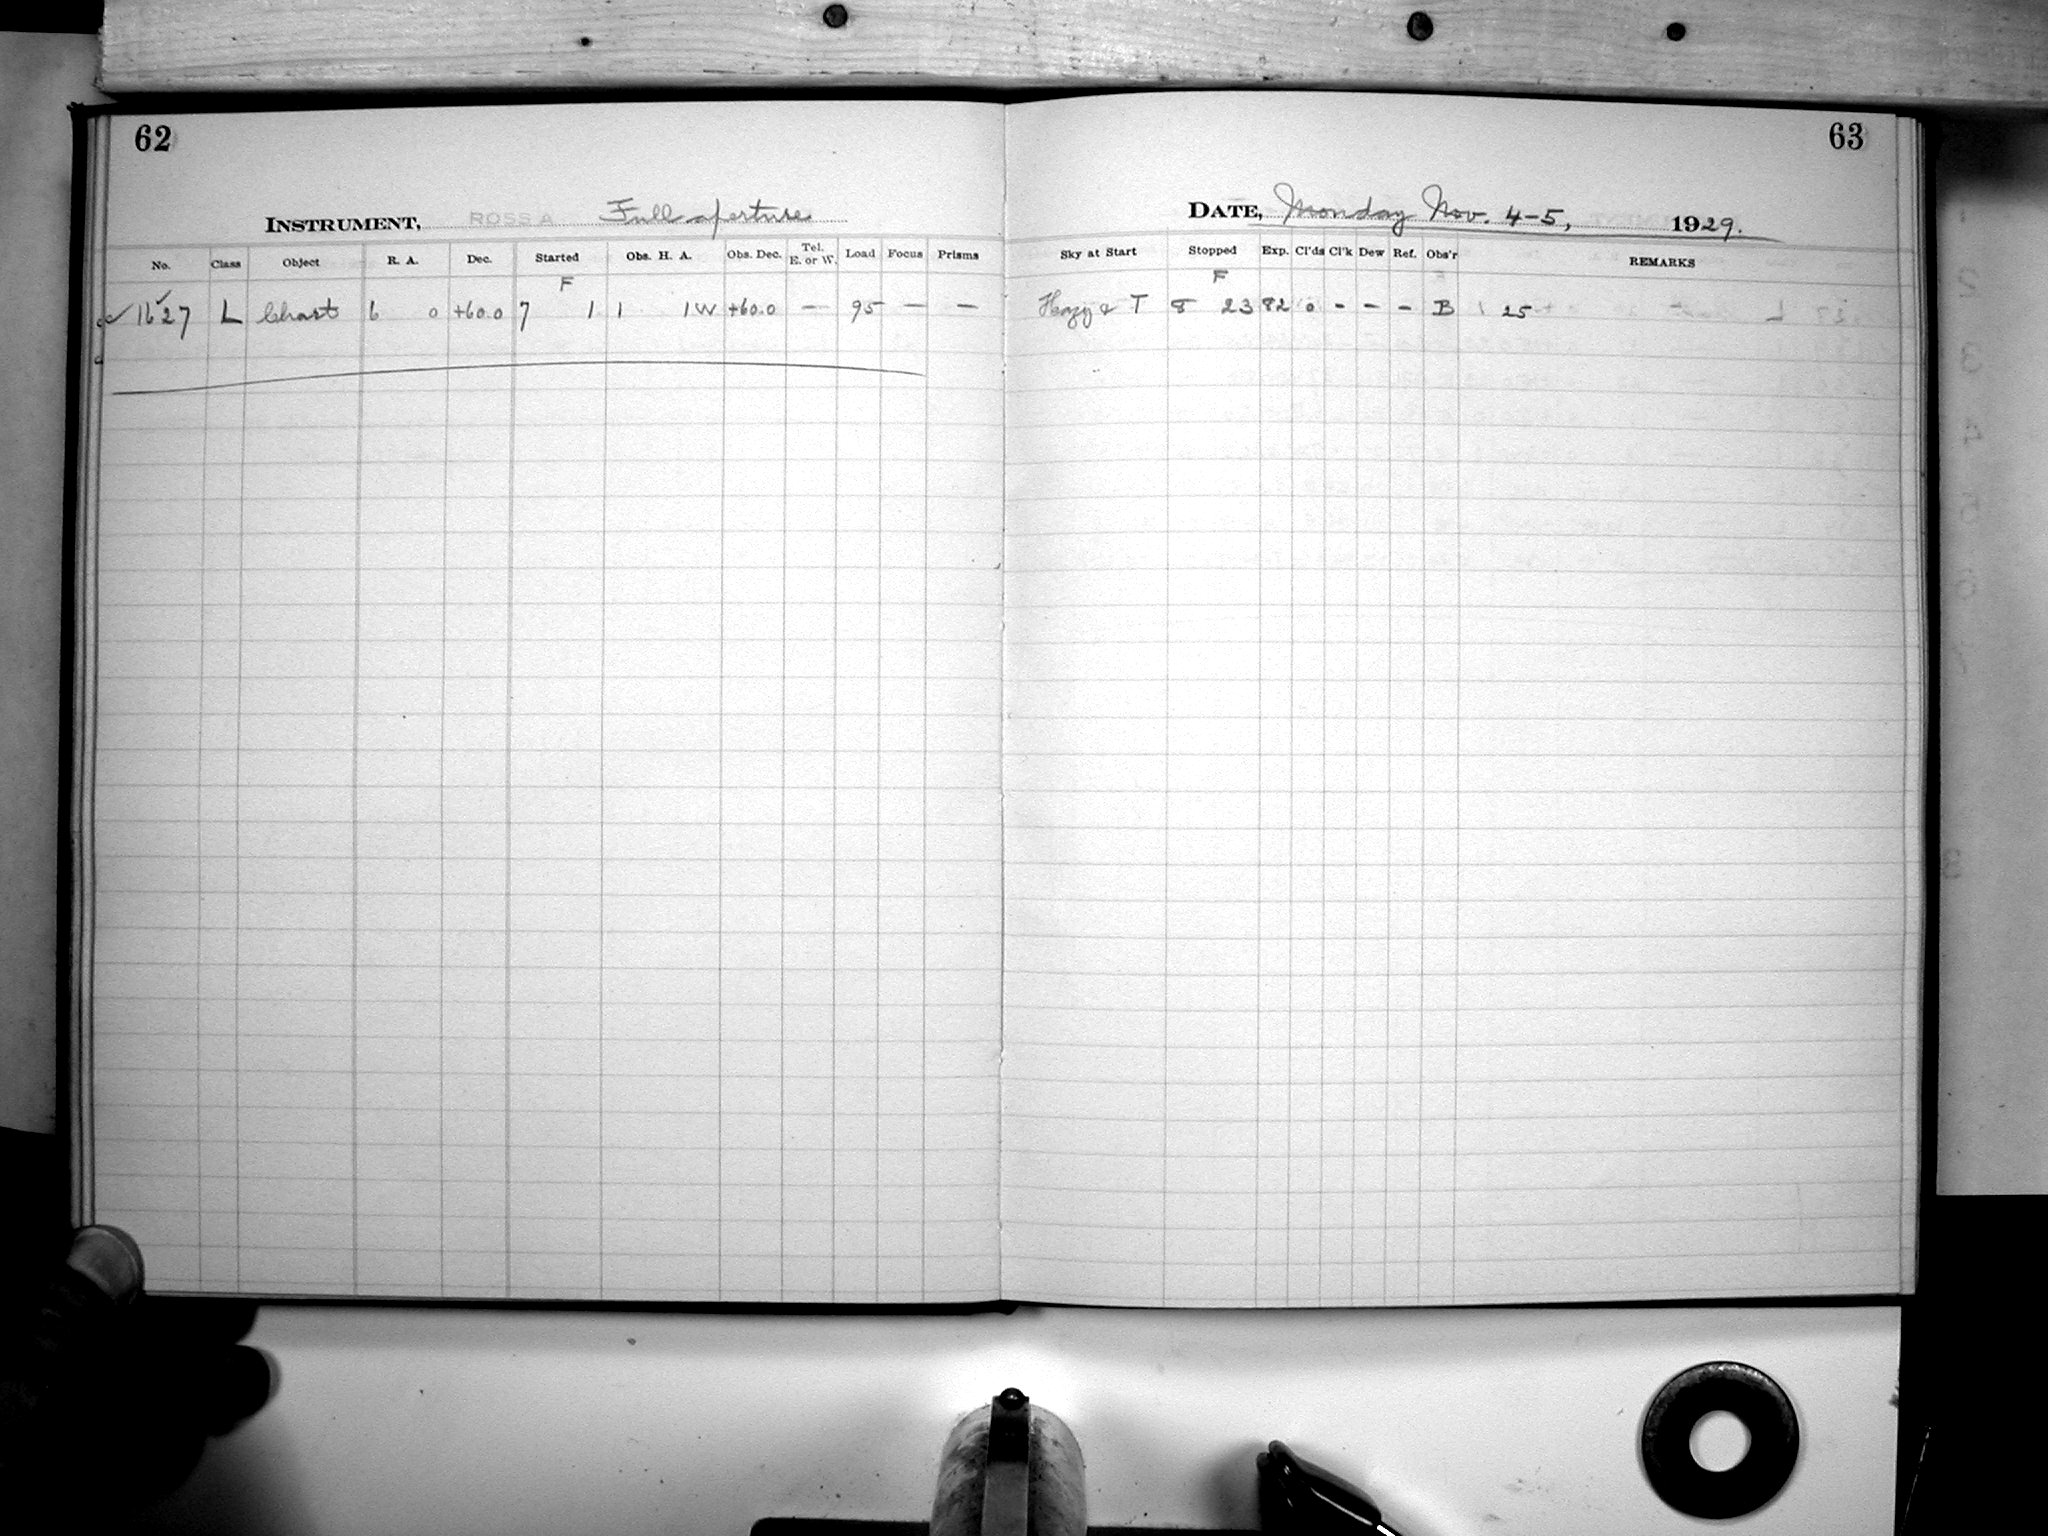 62
INSTRUMENT, ROSS A Full aperture
No. Class Object R. A. Dec. Started Obs. H. A. Obs. Dec. Tel. E. or W. Load Focus Prisms
F
✓ 1627 L Chart 6 0 +60.0 7 1 1 1W +60.0 — 95 — —
63
DATE, Monday Nov. 4-5, 1929.
Sky at Start Stopped Exp. Cl'ds Cl'k Dew Ref. Obs'r REMARKS
F
Hazy & T 8 23 82 0 - - - B 1 25